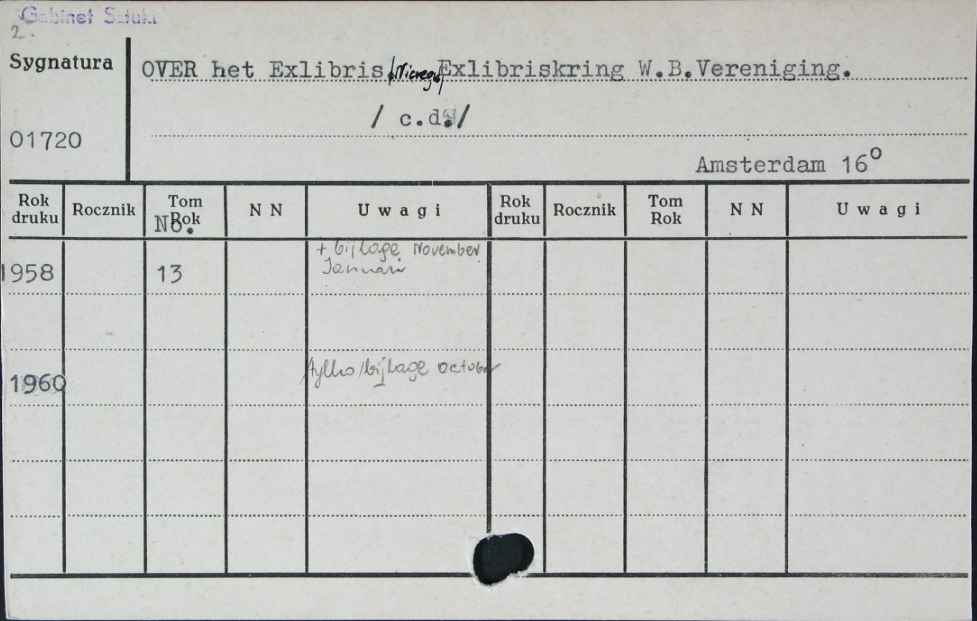 Gabinet Sztuki
2.
Sygnatura
OVER het Exlibris Exlibriskring W.B.Vereniging.
/ c.d./
01720
Amsterdam 16o
Rok druku Rocznik Tom Rok N N Uwagi Rok druku Rocznik Tom Rok N N Uwagi
No.
+ bijlage November
1958 13 Januari
1960 tylko/bijlage october